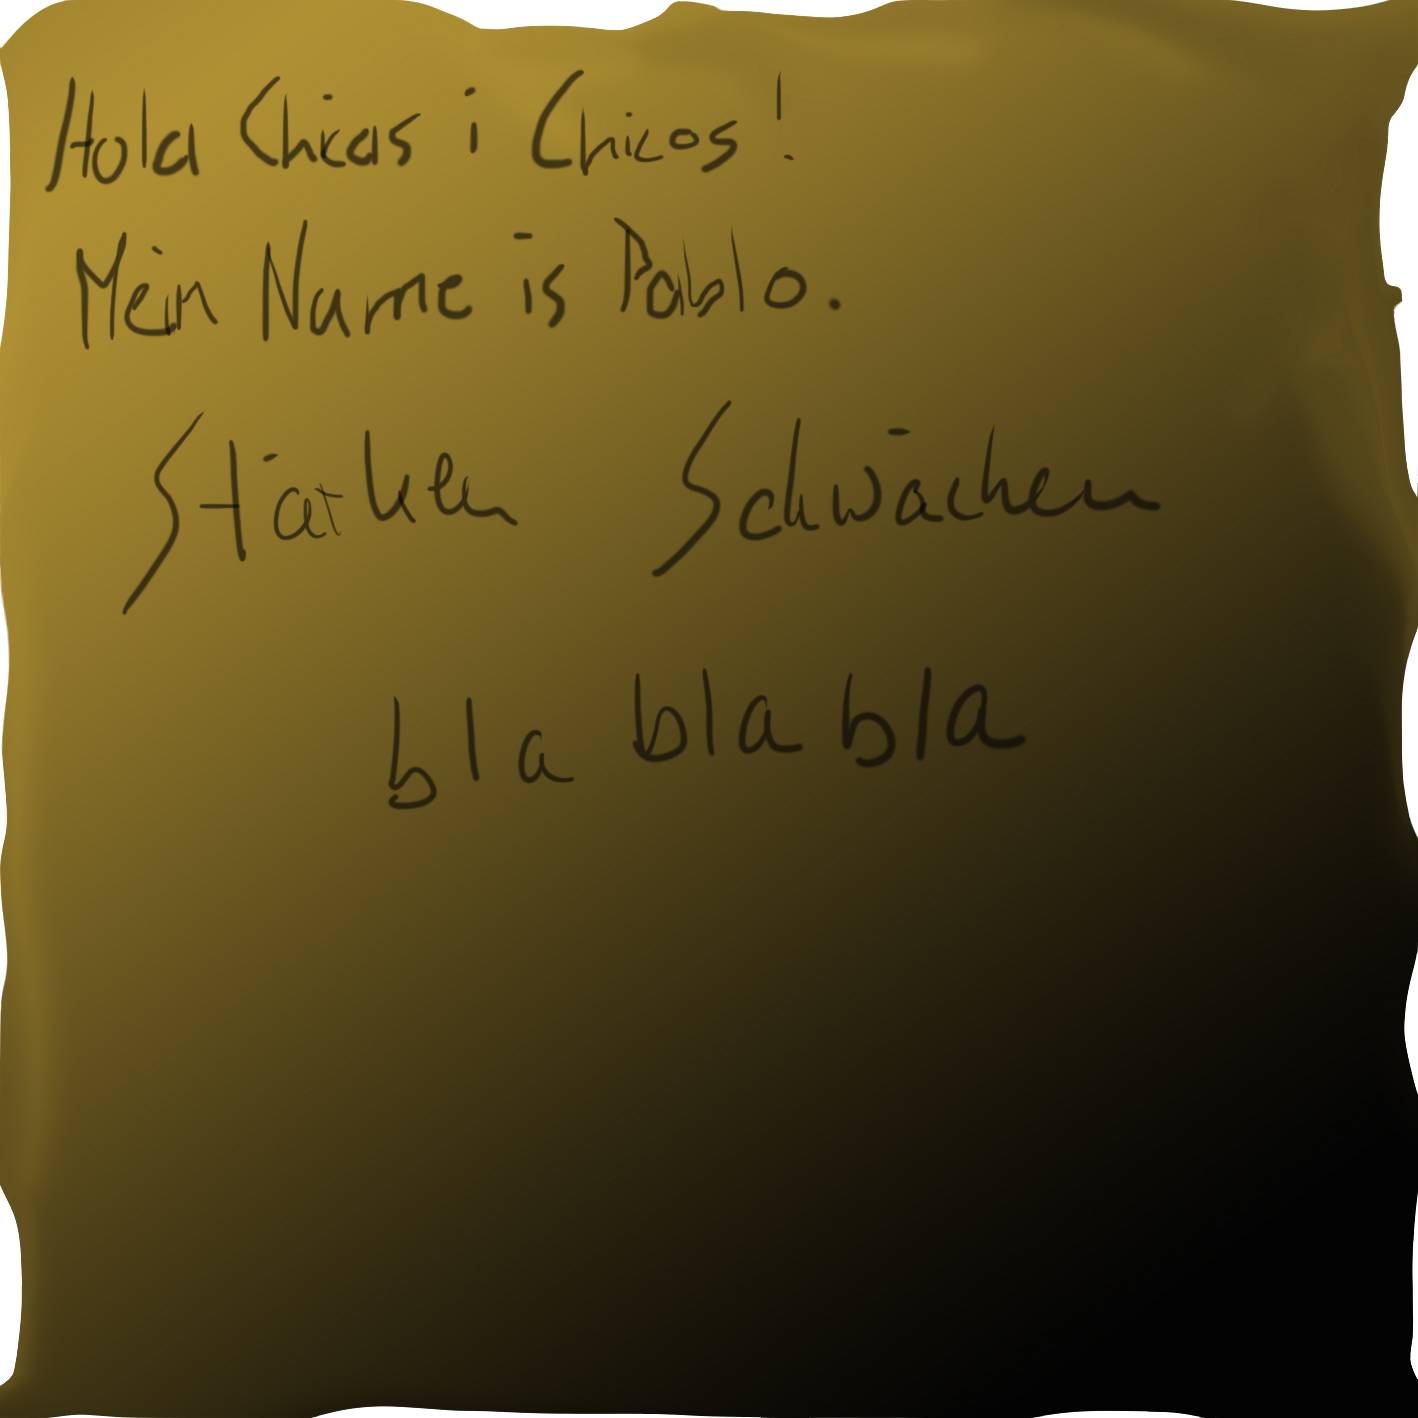 Hola Chicas i Chicos!
Mein Name is Pablo.
Stärken Schwächen
bla bla bla